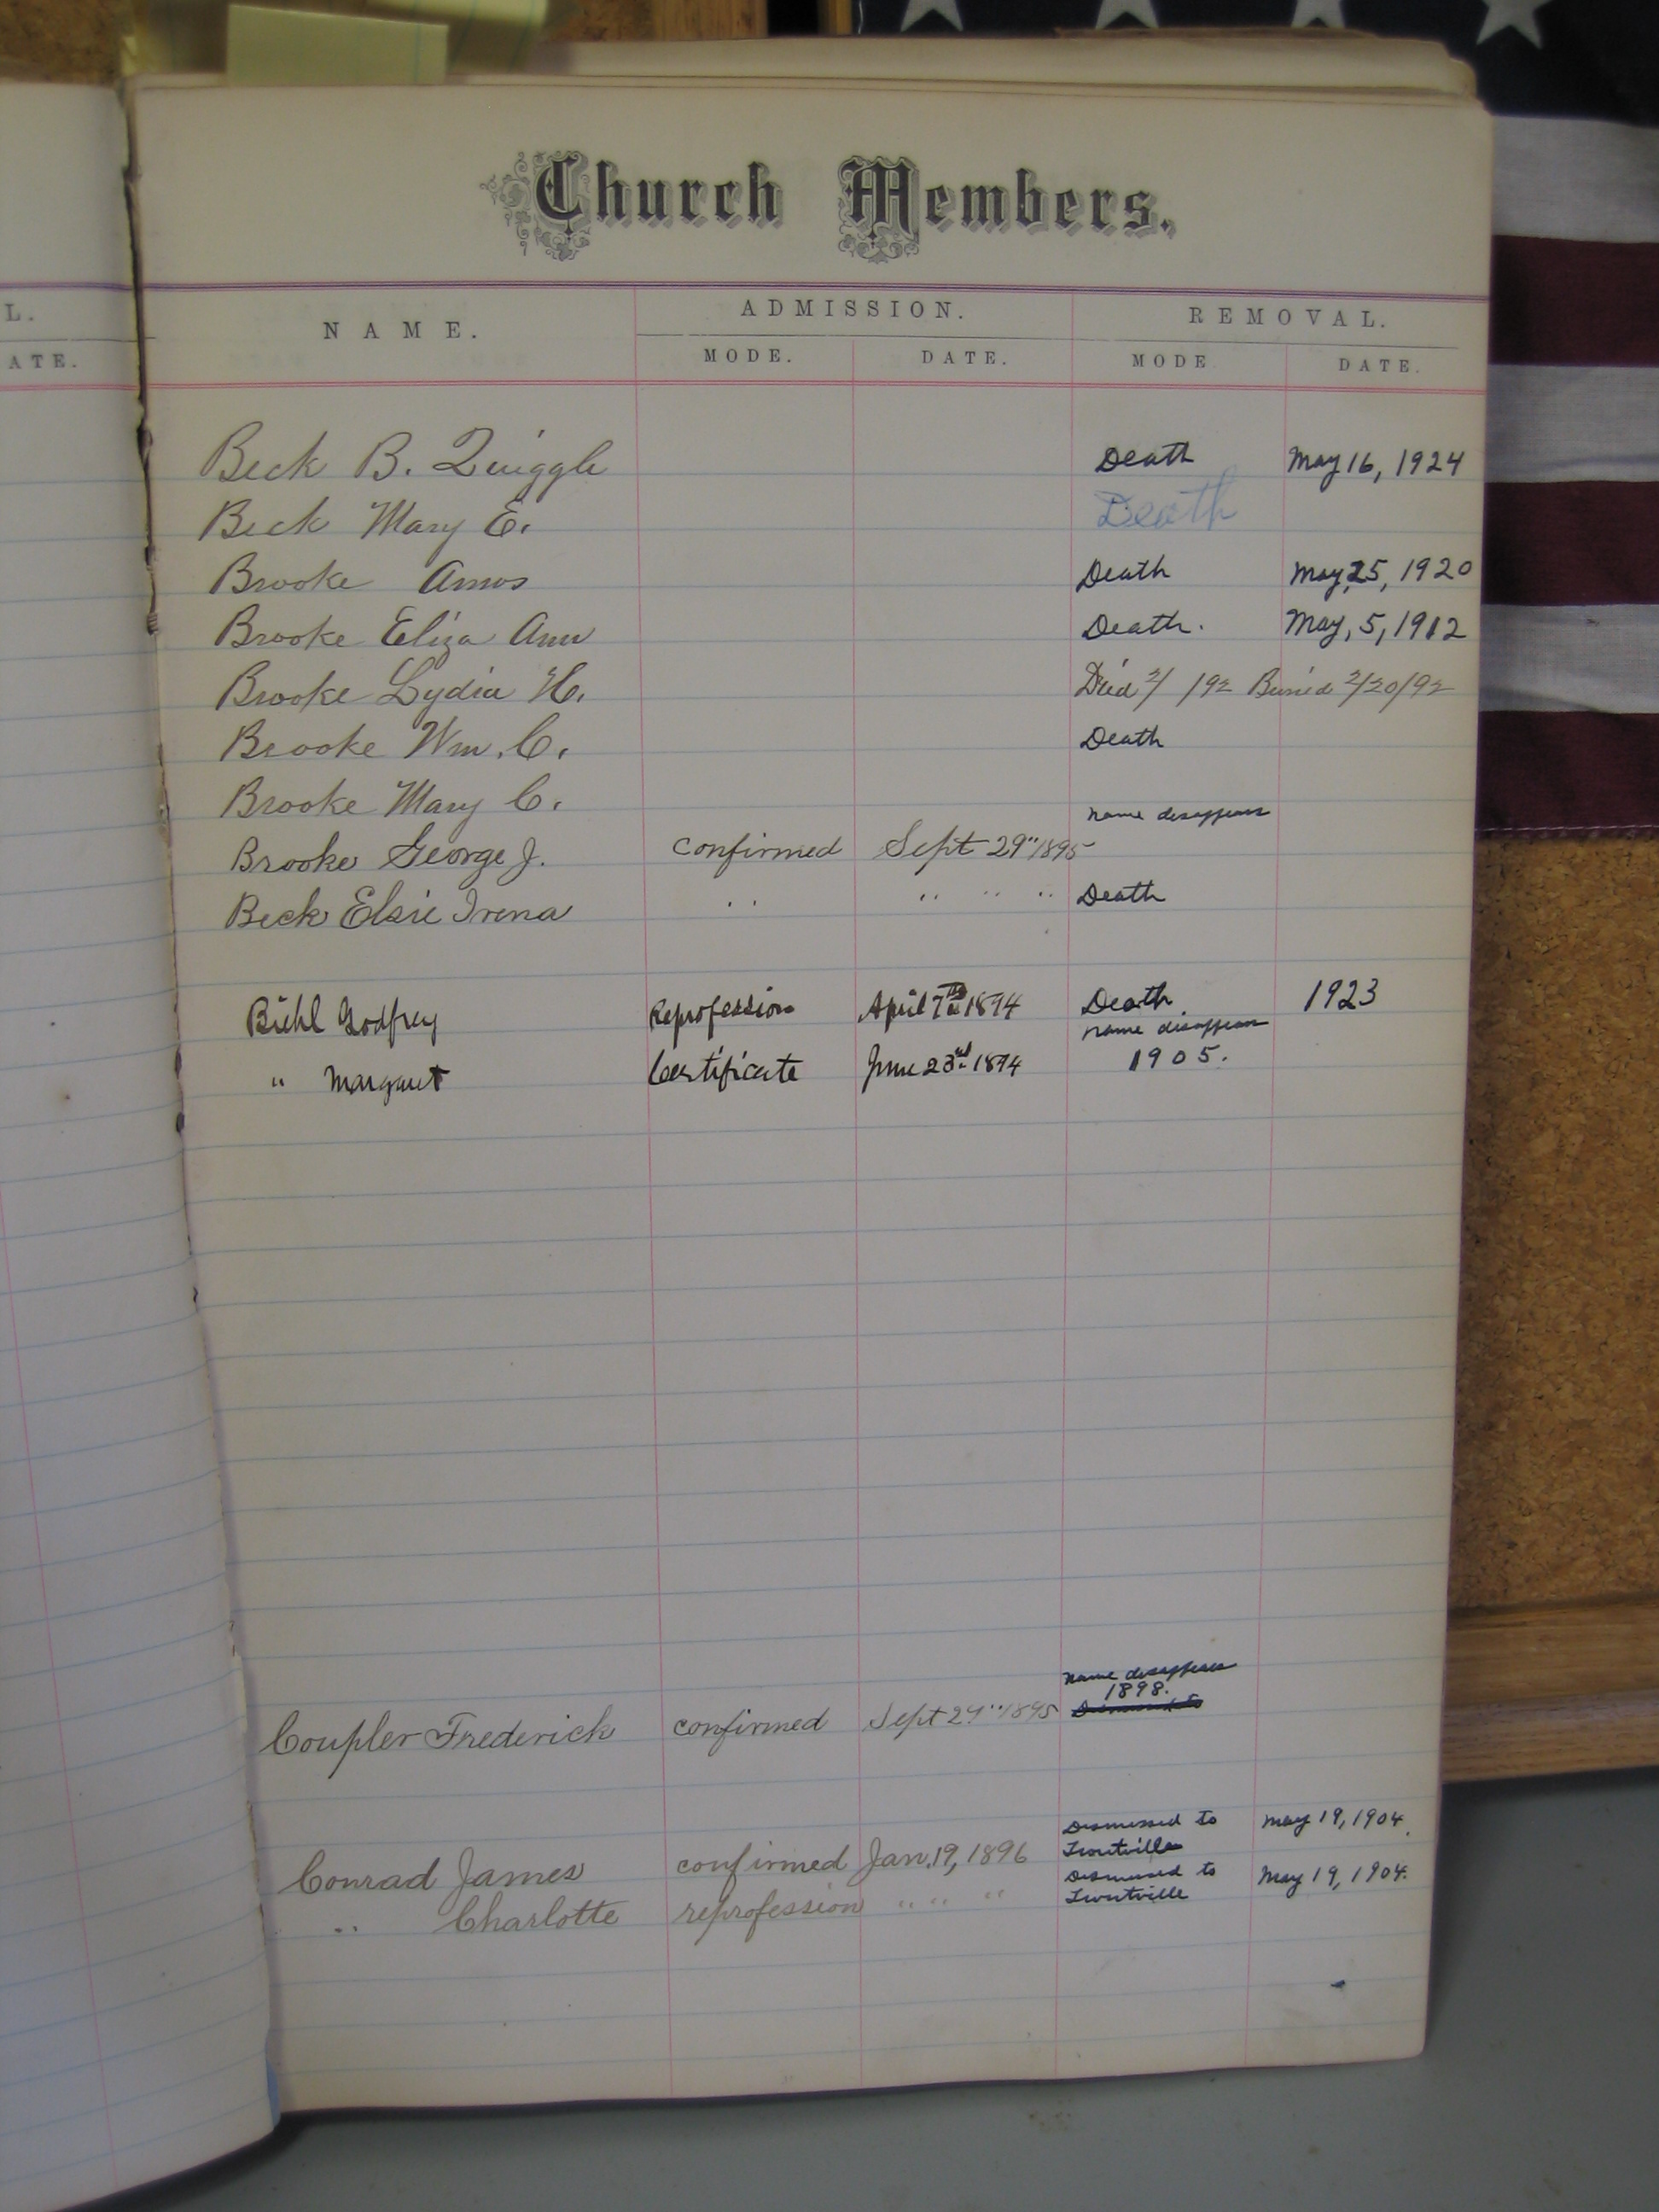 L.
ATE.
Church Members.
NAME. ADMISSION. REMOVAL.
MODE. DATE. MODE DATE.
Beck B. Quiggle Death May 16, 1924
Beck Mary E. Death
Brooke Amos Death May, 25, 1920
Brooke Eliza Ann Death. May, 5, 1912
Brooke Lydia H. Died 2/ /92 Buried 2/20/92
Brooke Wm. C. Death
Brooke Mary C.
name disappears
Brooke George J. confirmed Sept 29" 1895
Beck Elsie Irena " " " " Death
Biehl Godfrey Reprofession April 7th 1894 Death 1923
name disappears
" Margaret Certificate June 23rd 1894 1905.
name disappears
1898.
Coupler Frederick confirmed Sept 29" 1895
Dismissed to May 19, 1904.
Conrad James confirmed Jan. 19, 1896 Troutville
Dismissed to May 19, 1904.
" Charlotte reprofession " " " Troutville